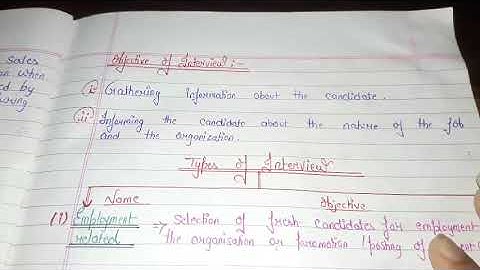 sales
when
ed by
Objective of Interview :-
i. Gathering information about the candidate.
ii. Informing the candidate about the nature of the job
and the organization.
Types of Interview
Name Objective
(1) Employment ⇒ Selection of fresh candidates for employment
related the organisation or promotion / posting of